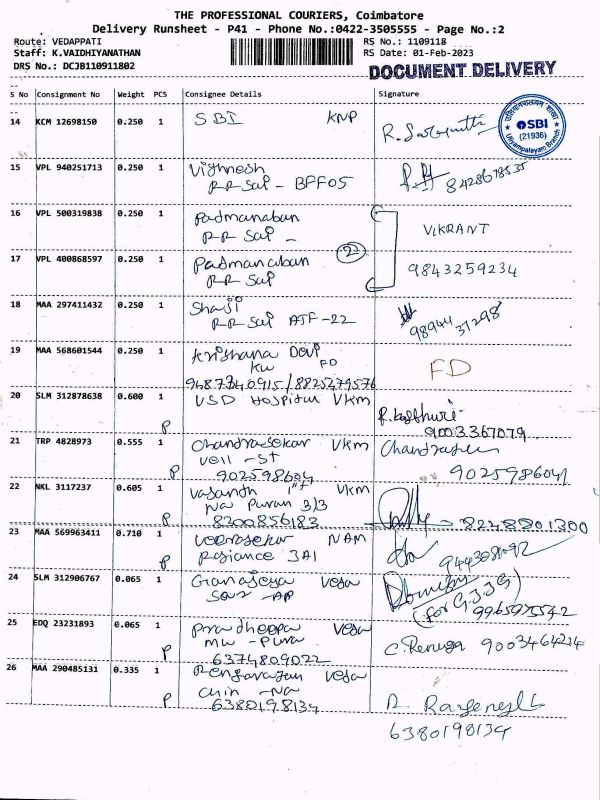 THE PROFESSIONAL COURIERS, Coimbatore
Delivery Runsheet - P41 - Phone No.:0422-3505555 - Page No.:2
Route: VEDAPPATI
Staff: K.VAIDHIYANATHAN
DRS No.: DCJB110911802
RS No.: 1109118
RS Date: 01-Feb-2023
DOCUMENT DELIVERY
S No Consignment No Weight PCS Consignee Details Signature
14 KCM 12698150 0.250 1 SBI KNP
SBI
(21936)
Uliyampalayam Branch
15 VPL 940251713 0.250 1 Vighnesh
RR Sai - BFF05 8428678535
16 VPL 500319838 0.250 1 Padmanaban VIKRANT
RR Sai -
17 VPL 400868597 0.250 1 Padmanaban 9843259234
RR Sai
18 MAA 297411432 0.250 1 Shaji
RR Sai AJF-22 9894431298
19 MAA 568601544 0.250 1 Krishana Devi FD
KW FD
9487340915/8825279576
20 SLM 312878638 0.600 1 USD Hospital VKM R.Kasthuri
P 9003367079
21 TRP 4828973 0.555 1 Chandrasekar VKM Chandrasekar
Vell - St
P 9025986041
22 NKL 3117237 0.605 1 Vasanth VKM
Na Puram 3/3
P 8200856183 8248801300
23 MAA 569963411 0.710 1 Veerasekar NAM
P Rajiance 3A1
24 SLM 312906767 0.065 1 Gianajeya Veda
(for G.J.G)
9965975542
25 EDQ 23231893 0.065 1 Pradheepa Veda C.Renuga 9003464214
mw - Pura
P 6374809022
26 MAA 290485131 0.335 1 Rengarajan Veda
P 6380198134
6380198134